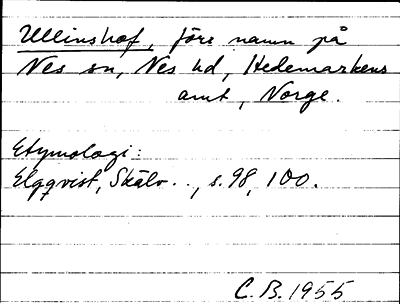 Ullinshof, förr namn på
Nes sn, Nes hd, Hedemarkens
amt, Norge.
Etymologi:
Elgqvist, Skälv.., s. 98, 100.
C. B. 1955